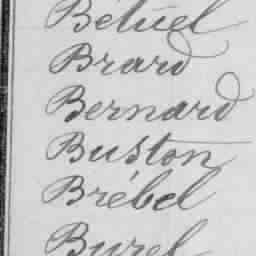 Bétuel
Brard
Bernard
Buston
Brébel
Burel